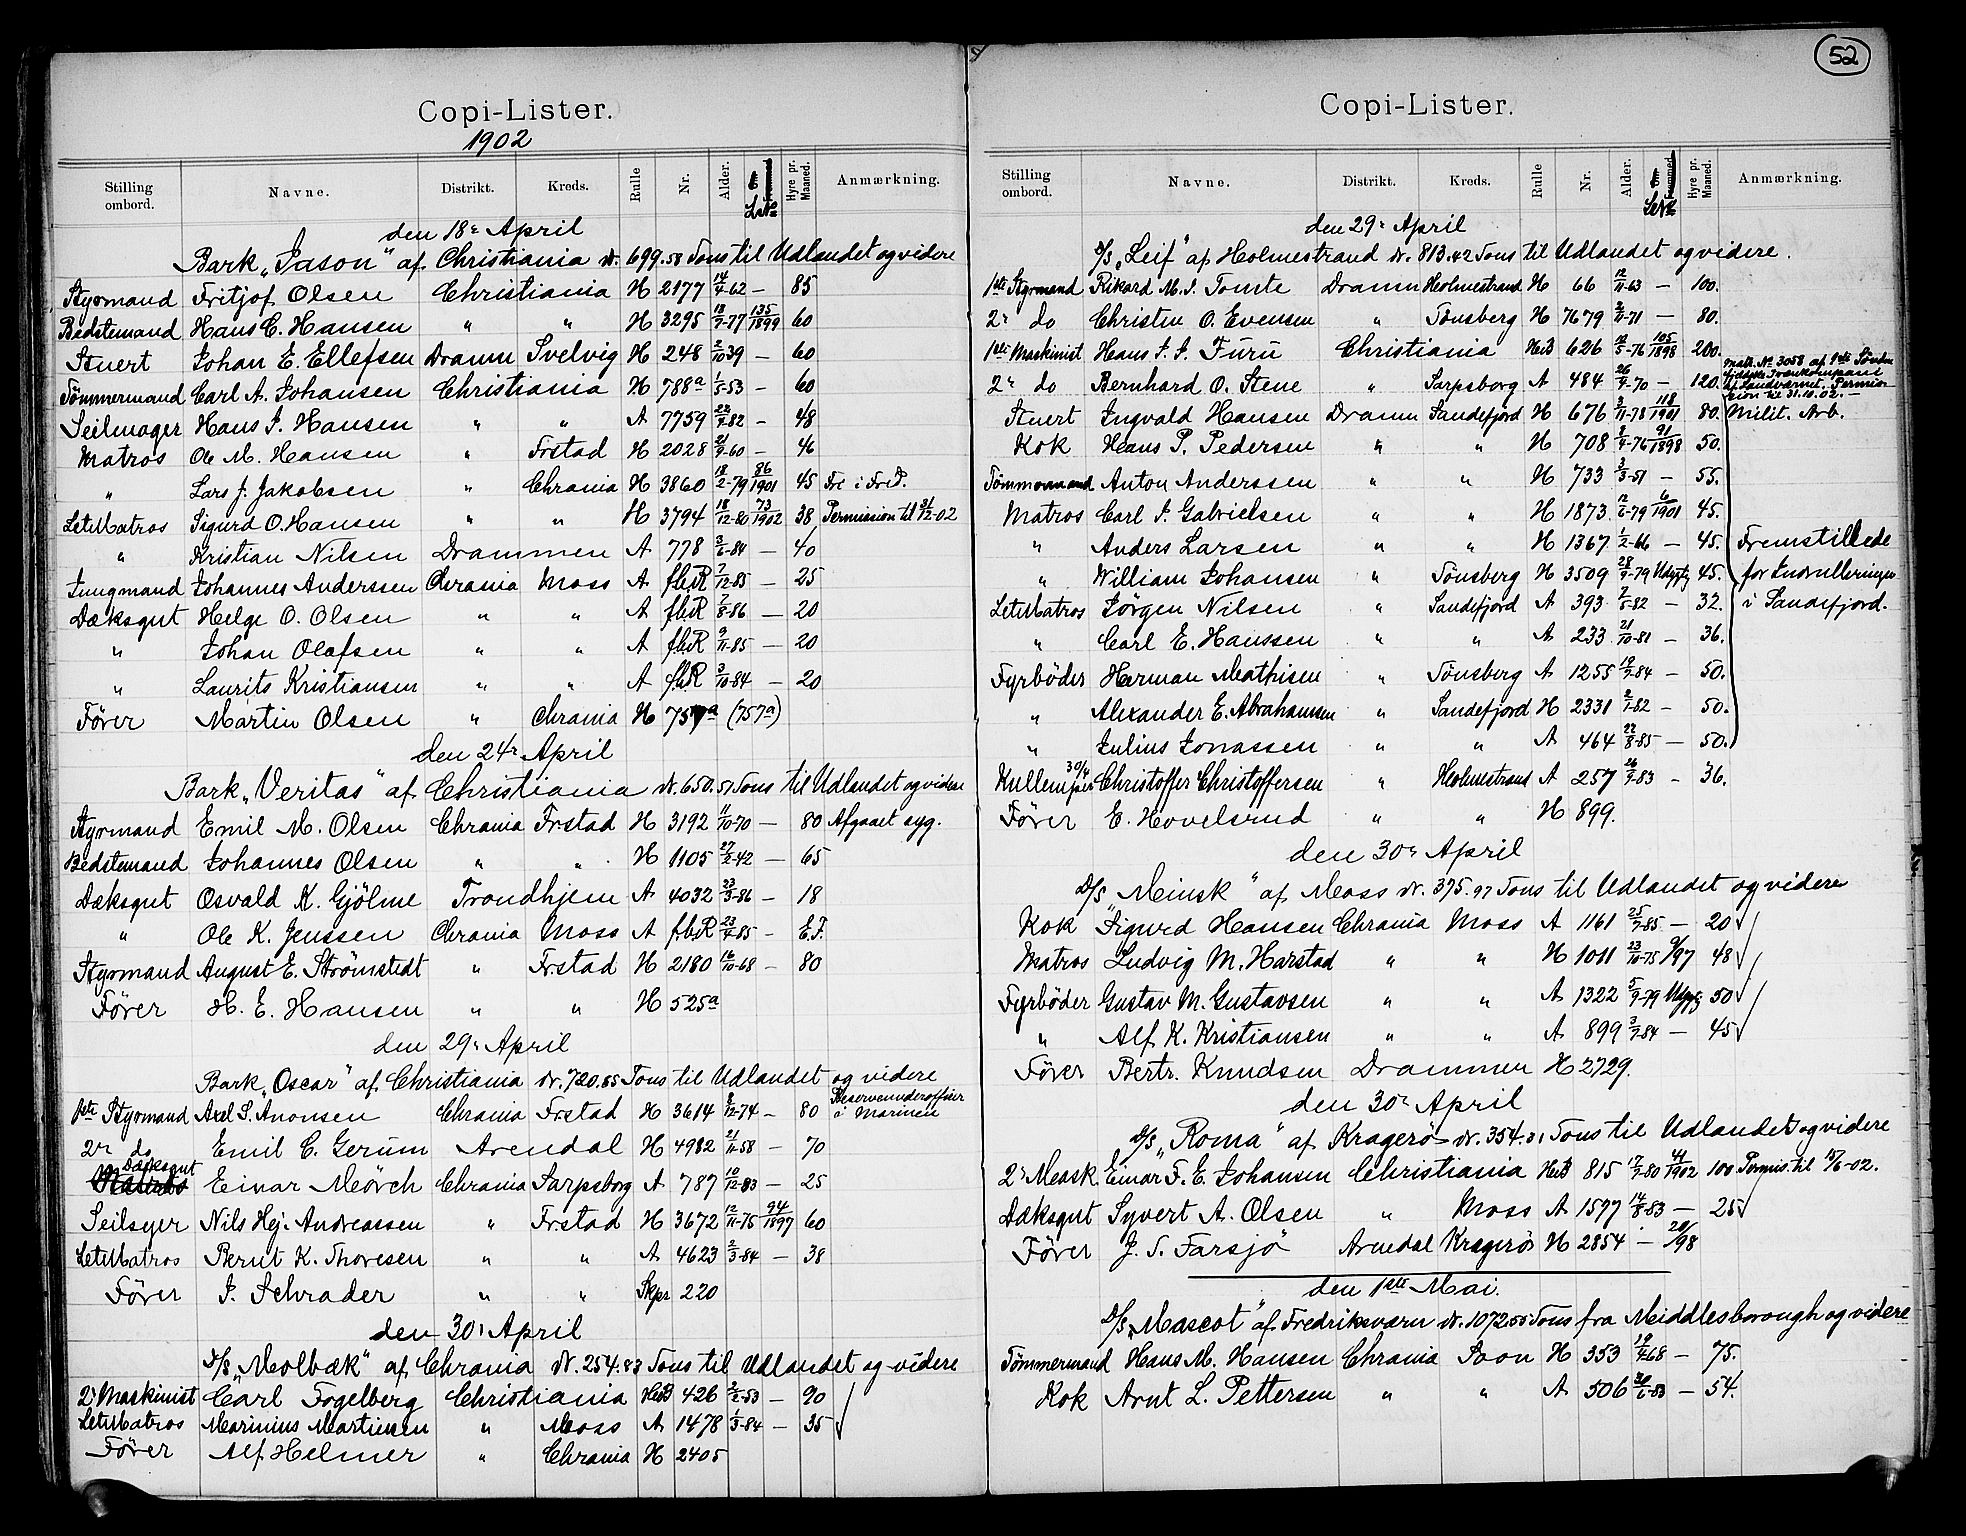 52
Copi-Lister.
1902
Stilling ombord. Navne. Distrikt. Kreds. Rulle Nr. Alder. Hyre pr. Maaned. Anmærkning.
den 18de April
Bark „Jason“ af Christiania dr. 699.58 Tons til Udlandet og videre
Styrmand Fritjof Olsen Christiania H 2177 14/4-62 — 85
Bedstemand Hans C. Hansen " " H 3295 18/7-77 135/1899 60
Stuert Johan E. Ellefsen Dramn Svelvig H 248 2/10 39 — 60
Tömmermand Carl A. Johansen Christiania H 788a 1/5-53 — 60
Seilmager Hans J. Hansen " " A 7759 22/9-82 - 48
Matros Ole M. Hansen " Frstad H 2028 21/9-60 — 46
" Lars J. Jakobsen " Chrania H 3860 18/2-79 86/1901 45 Fri i FrD.
LetMatros Sigurd O. Hansen " " H 3794 18/12-80 73/1902 38 Permission til 31/12-02
" Kristian Nilsen Drammen A 778 3/6-84 — 40
Jungmand Johannes Anderssen Chrania Moss A f.b.R 7/12-85 — 25
Dæksgut Helge O. Olsen " " A f.b.R 7/8-86 — 20
" Johan Olafsen " " A f.b.R 9/11-85 — 20
" Laurits Kristiansen " " A f.b.R 3/10-84 — 20
Förer Martin Olsen " Chrania H 757a (757a)
den 24de April
Bark „Veritas“ af Christiania dr. 650.57 Tons til Udlandet og videre
Styrmand Emil M. Olsen Chrania Frstad H 3192 11/10-70 — 80 Afgaaet syg.
Bedstemand Johannes Olsen " " H 1105 27/2-42 — 65
Dæksgut Osvald K. Gjölme Trondhjem A 4032 23/3-86 — 18
" Ole K. Jenssen Chrania Moss A f.b.R 23/4-85 — E.F.
Styrmand August E. Strömstedt " Frstad H 2180 16/10-68 — 80
Förer H. E. Hansen " " H 525a
den 29de April
Bark „Oscar“ af Christiania dr. 720.85 Tons til Udlandet og videre
1ste Styrmand Axel S. Anonsen Chrania Frstad H 3614 8/12-74 — 80 Reserveunderofficer i Marinen
2den do Emil C. Gerum Arendal H 4982 21/11-58 — 70
Dæksgut Einar Mörch Chrania Sarpsborg A 787 10/12-83 — 25
Seilsyer Nils Hj. Andreassen " Frstad H 3672 12/11-75 94/1897 60
LetMatros Bernt K. Thoresen " " A 4623 2/3-84 — 38
Förer J. Schrader " " Skpr 220
den 30te April
D/S „Molbæk“ af Chrania dr. 254.83 Tons til Udlandet og videre
2den Maskinist Carl Fogelberg Christiania HxB 426 2/2-53 — 90
LetMatros Marinius Martinsen " Moss A 1478 1/3-84 — 35
Förer Alf Helmer " Chrania H 2405
Copi-Lister.
Stilling ombord. Navne. Distrikt. Kreds. Rulle Nr. Alder. Hyre pr. Maaned. Anmærkning.
den 29de April
D/S „Leif“ af Holmestrand dr. 813.42 Tons til Udlandet og videre.
1ste Styrmand Rikard M. J. Tomte Dramn Holmestrand H 66 12/11-63 — 100.
2den do Christen O. Evensen " Tönsberg H 7679 2/11-71 — 80.
1ste Maskinist Hans J. J. Furu Christiania HxB 626 12/5-76 105/1898 200.
2den do Bernhard O. Stene " Sarpsborg A 484 26/9-70 — 120. Permission til 31.10.02.—
Stuert Ingvald Hansen Dramn Sandefjord H 676 3/11-78 118/1901 80. Milit. Arb.
Kok Hans P. Pedersen " " H 708 8/9-76 91/1898 50.
Tömmermand Anton Anderssen " " H 733 3/3-51 — 55.
Matros Carl J. Gabrielsen " " H 1873 12/2-79 6/1901 45.
" Anders Larsen " " H 1367 1/2-66 — 45. Fremstillede
" William Johansen " Tönsberg H 3509 28/9-79 Udygtg 45. for Indrulleringen
LetMatros Jörgen Nilsen " Sandefjord A 393 7/5-82 — 32. i Sandefjord.
" Carl E. Hanssen " " A 233 21/10-81 — 36.
Fyrböder Herman Mathisen " Tönsberg A 1255 19/2-84 — 50.
" Alexander E. Abrahamsen " Sandefjord H 2331 2/1-82 — 50.
" Julius Jonassen " " A 464 22/8-85 — 50.
30/4
Kullemper Christoffer Christoffersen " Holmestrand A 257 26/9-83 — 36.
Förer E. Hovelsrud " " H 899.
den 30te April
D/S „Minsk“ af Moss dr. 375.97 Tons til Udlandet og videre
Kok Sigurd Hansen Chrania Moss A 1161 25/7-85 — 20
Matros Ludvig M. Harstad " " H 1011 23/10-75 9/97 48
Fyrböder Gustav M. Gustavsen " " A 1322 5/9-79 Udygtg 50
" Alf K. Kristiansen " " A 899 3/7-84 — 45
Förer Bertr. Knudsen Drammen H 2729.
den 30te April
D/S „Roma“ af Kragerö dr. 354.31 Tons til Udlandet og videre
2den Mask. Einar F. E. Johansen Christiania HxB 815 17/9-80 41/1902 100 Permis. til 15/6-02.
Dæksgut Syvert A. Olsen " Moss A 1577 14/8-83 — 25
Förer J. S. Farsjö Arendal Kragerö H 2854 — 20/98
den 1ste Mai.
D/S „Mascot“ af Fredriksværn dr. 1072.55 Tons fra Middlesborough og videre
Tömmermand Hans M. Hansen Chrania Soon H 353 19/2-68 — 75.
Kok Arnt L. Pettersen " " A 506 26/6-83 — 54.